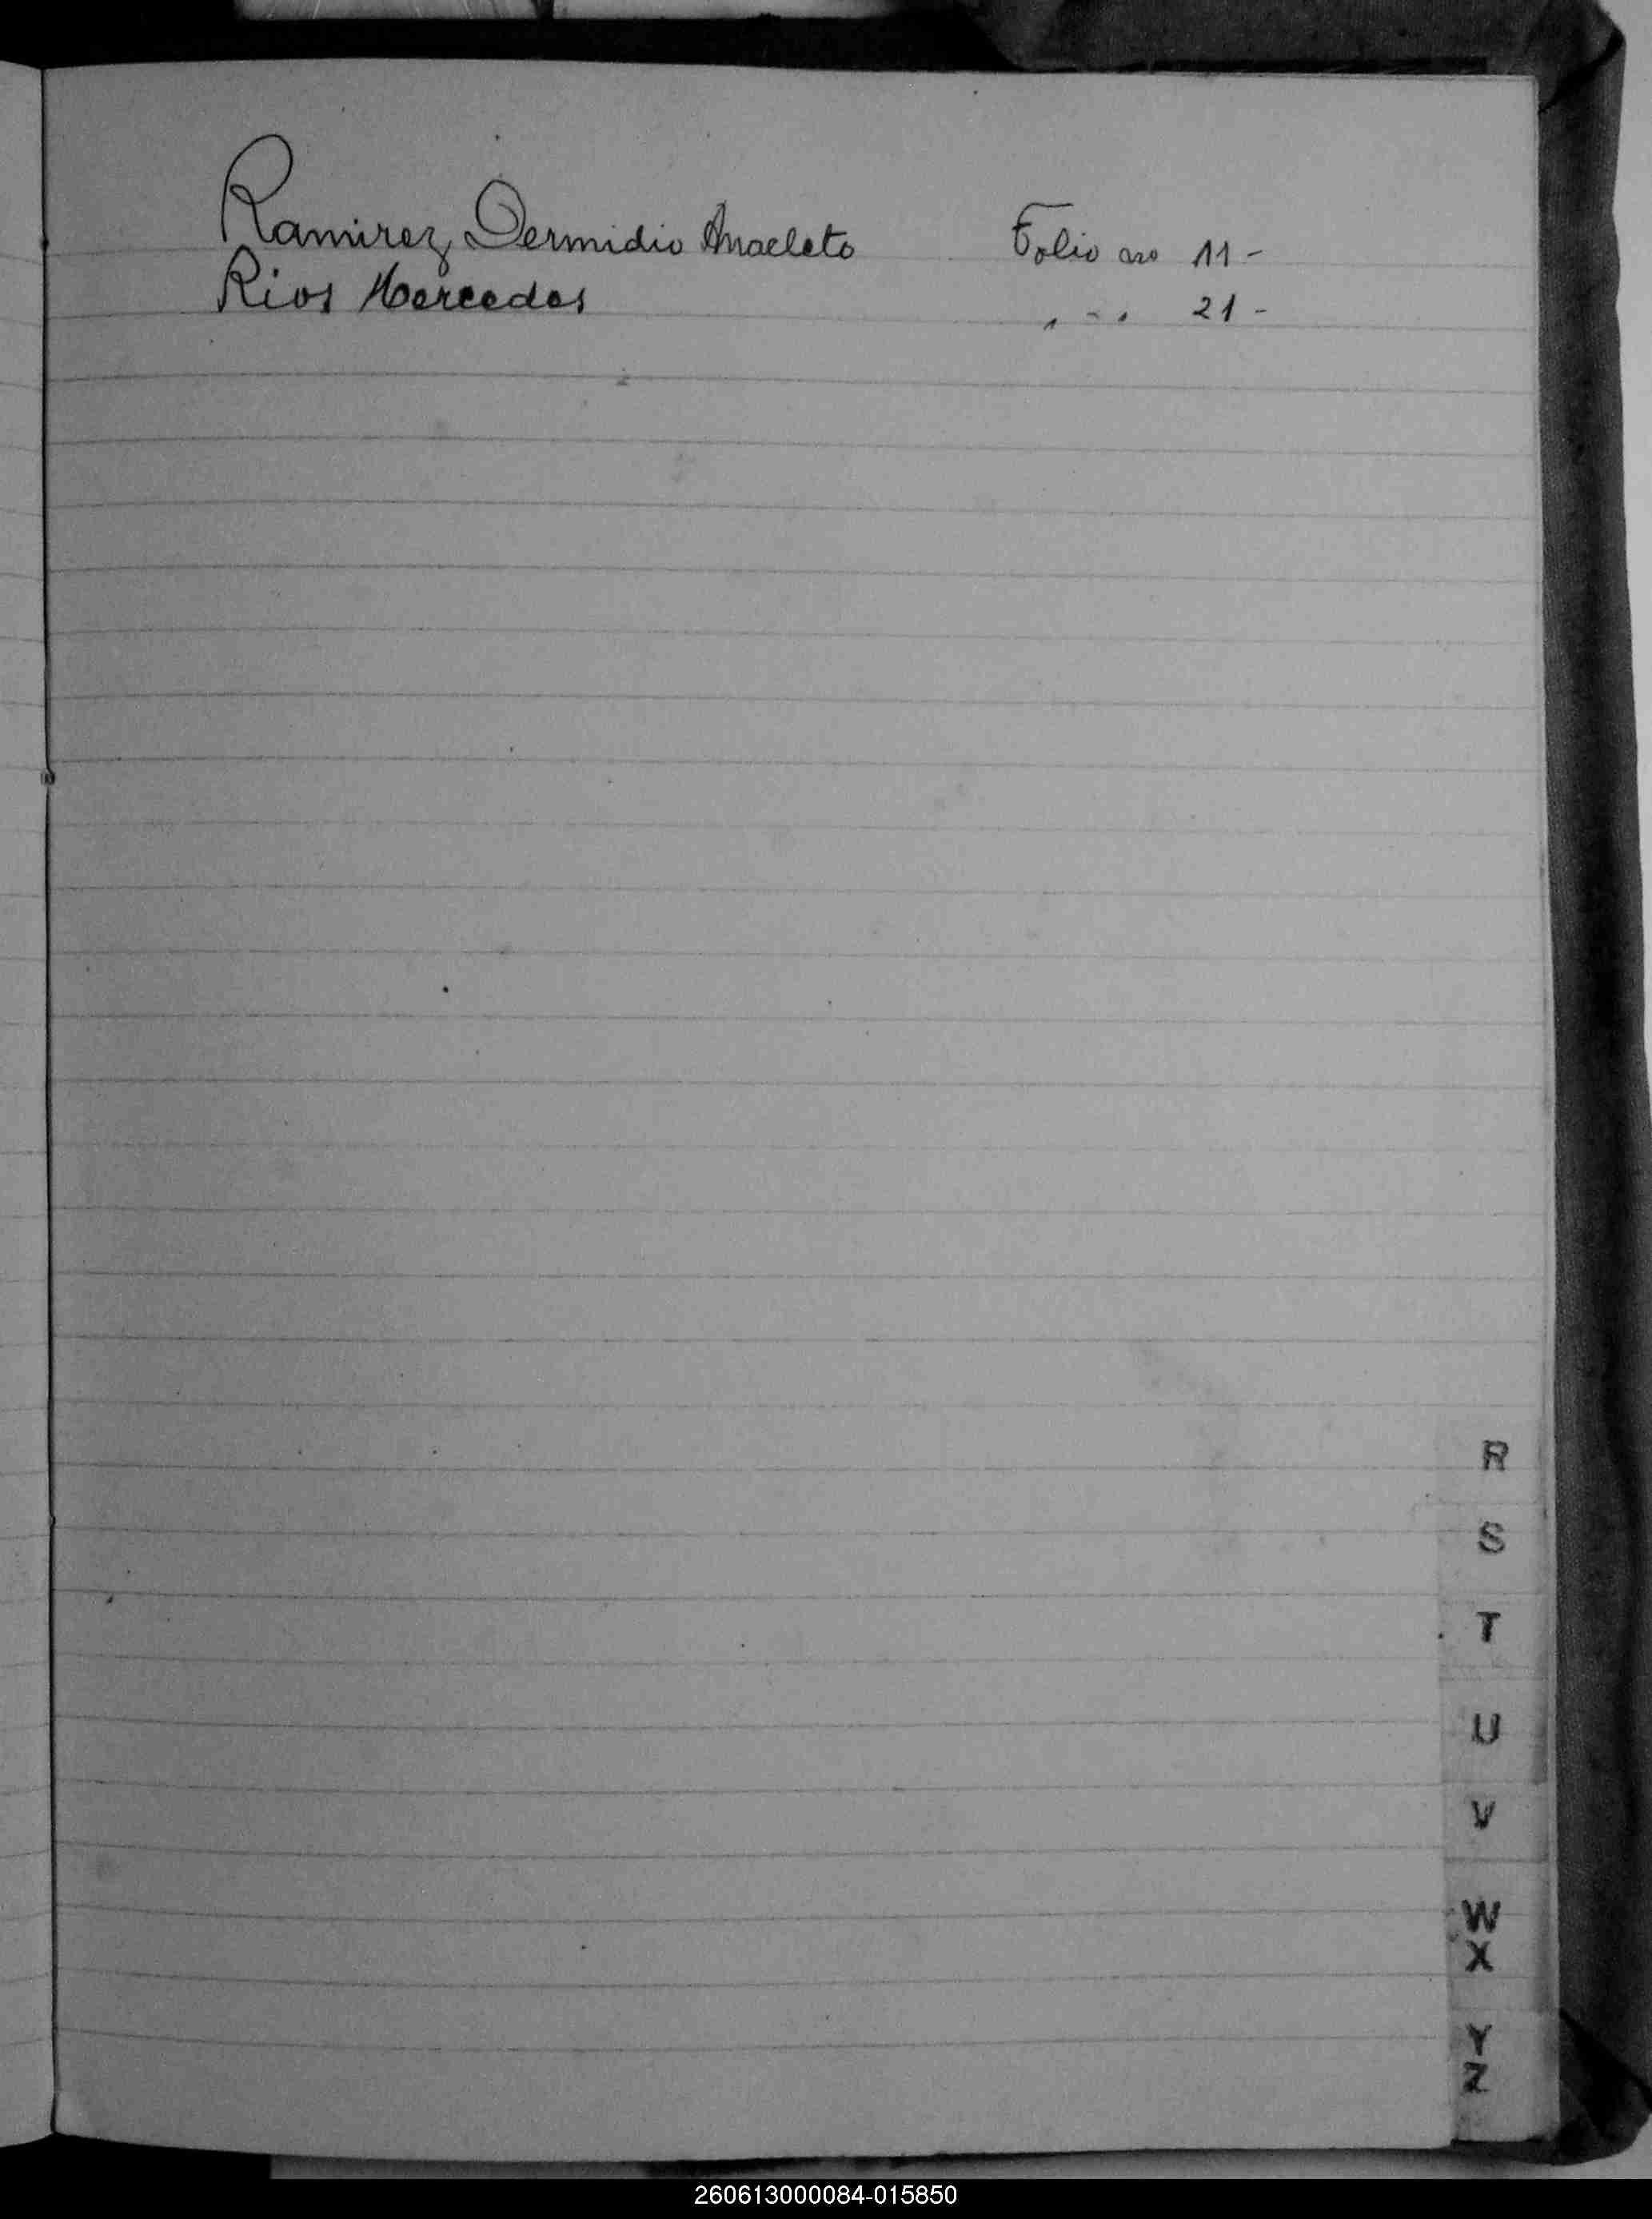 Ramirez Dermidio Anacleto Folio no 11-
Rios Mercedes " " " 21-
R
S
T
U
V
W
X
Y
Z
260613000084-015850